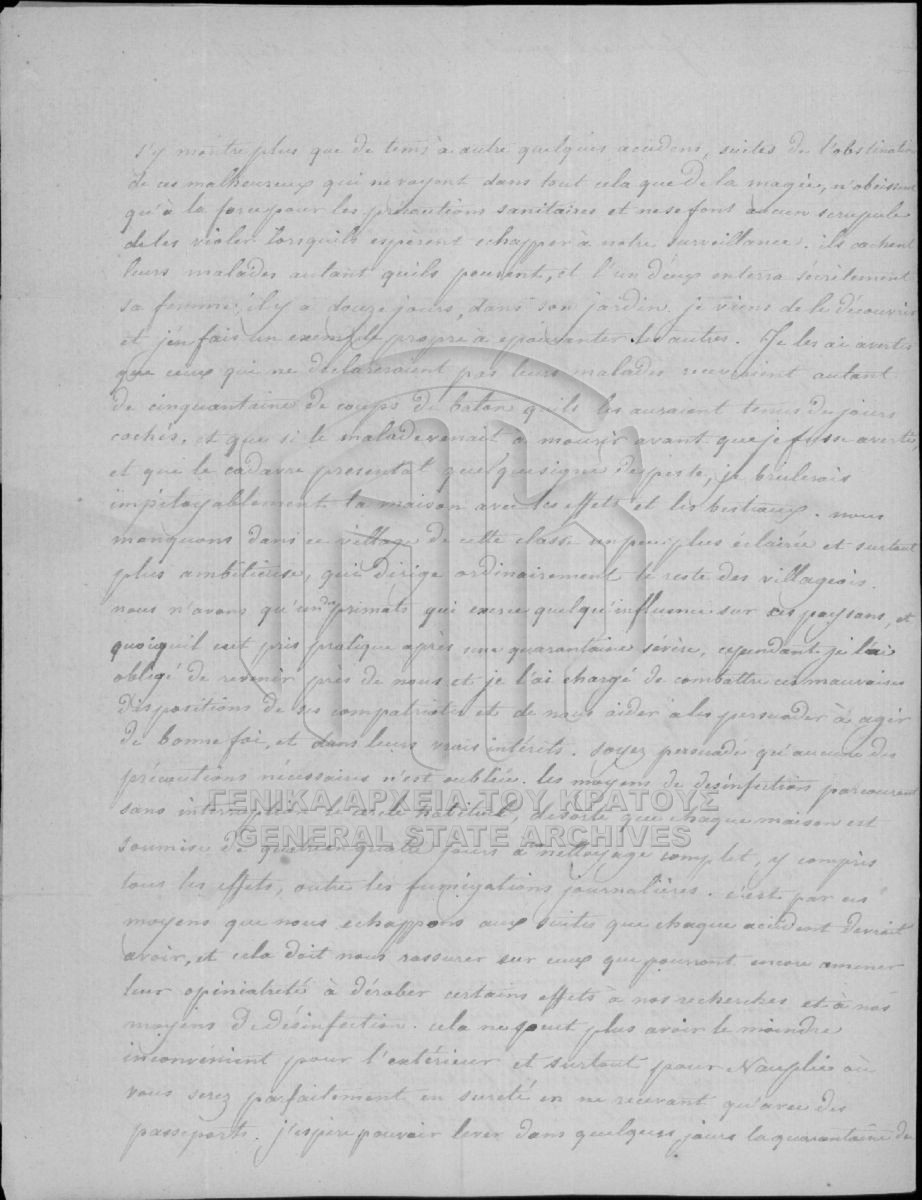 s'y montre plus que de tems à autre quelques accidens, suites de l'obstination
de ces malheureux qui ne voyent dans tout cela que de la magie, n'obéissent
qu'à la force pour les précautions sanitaires et ne se font aucun scrupule
de les violer lorsqu'ils espèrent échapper à notre surveillance. ils cachent
leurs malades autant qu'ils peuvent, et l'un d'eux enterra sécrètement
sa femme, il y a douze jours, dans son jardin. je viens de le découvrir
et j'en fais un exemple propre à épouvanter les autres. Je les ai avertis
que ceux qui ne déclareraient pas leurs malades recevraient autant
de cinquantaine de coups de baton qu'ils les auraient tenus de jours
cachés, et que si le malade venait à mourir avant que je fusse averti,
et que le cadavre presentat quelque signe de peste, je brulerais
impitoyablement la maison avec les effets et les bestiaux. nous
manquons dans ce village de cette classe un peu plus éclairée et surtout
plus ambitieuse, qui dirige ordinairement le reste des villageois.
nous n'avons qu'un des primats qui exerce quelqu'influence sur ces paysans, et
quoiqu'il eut pris pratique après une quarantaine sévère, cependant je l'ai
obligé de revenir près de nous et je l'ai chargé de combattre ces mauvaises
dispositions de ses compatriotes et de nous aider à les persuader à agir
de bonne foi, et dans leurs vrais intérêts. soyez persuadé qu'aucune des
précautions nécessaires n'est oubliée. les moyens de desinfection parcourent
sans interruption le cercle habituel, desorte que chaque maison est
soumise de quatre en quatre jours à nettoyage complet, y compris
tous les effets, outre les fumigations journalières. c'est par ces
moyens que nous échappons aux suites que chaque accident devrait
avoir, et cela doit nous rassurer sur ceux que pourront encore amener
leur opiniatreté à dérober certains effets à nos recherches et à nos
moyens de désinfection. cela ne peut plus avoir le moindre
inconvénient pour l'extérieur et surtout pour Nauplie où
vous serez parfaitement en sureté en ne recevant qu'avec des
passeports. j'espère pouvoir lever dans quelques jours la quarantaine de
ΓΕΝΙΚΑ ΑΡΧΕΙΑ ΤΟΥ ΚΡΑΤΟΥΣ
GENERAL STATE ARCHIVES